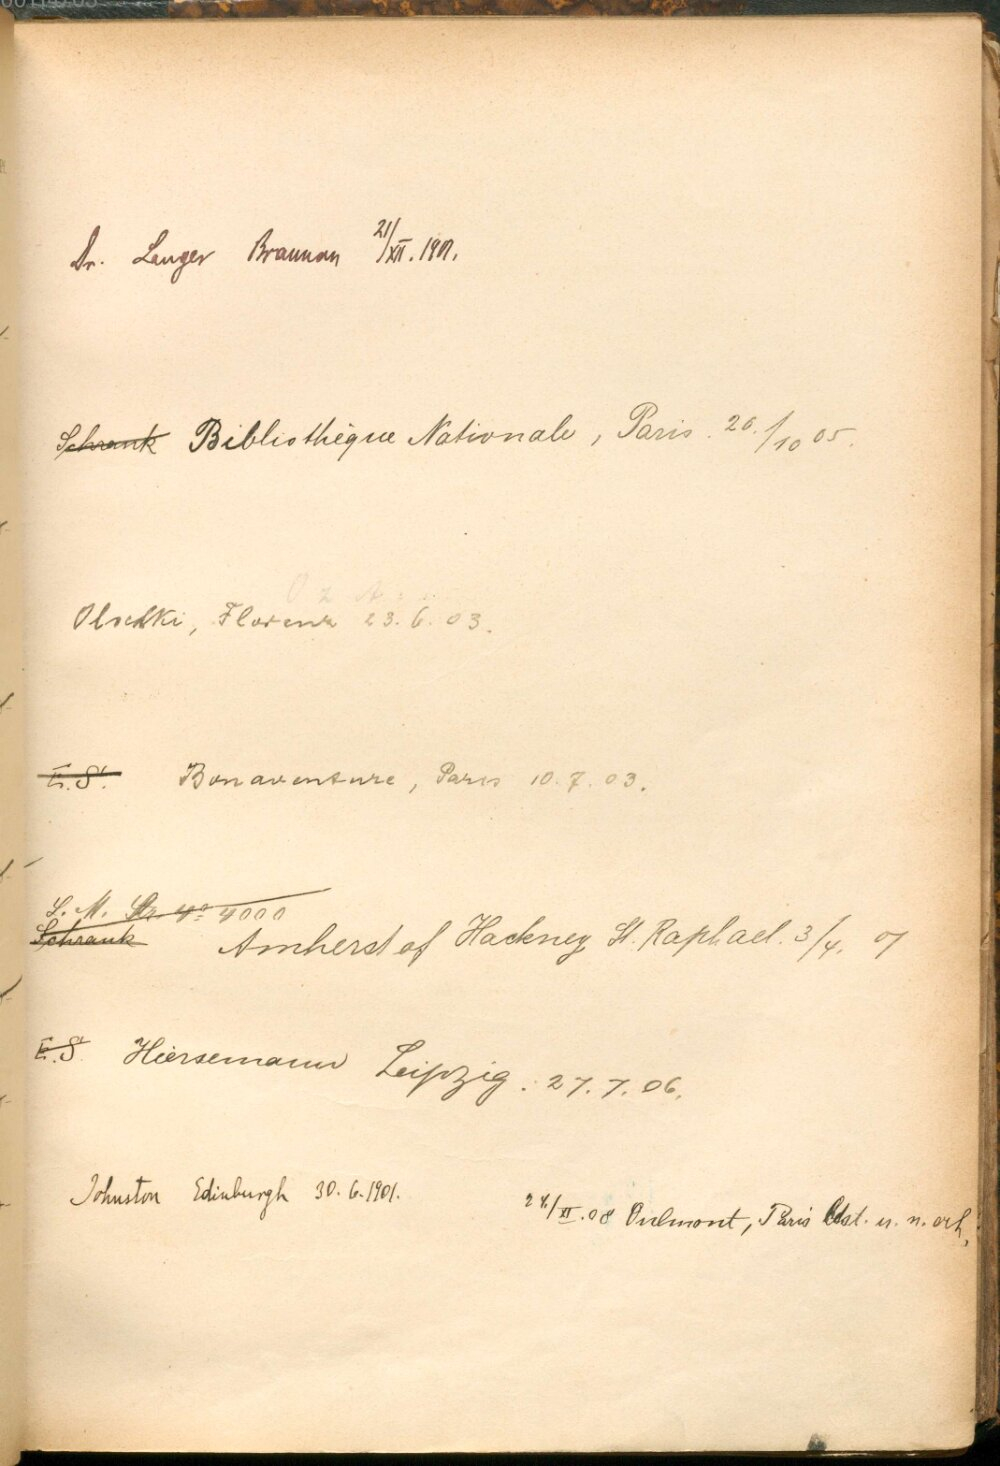 Dr. Langer Braunau 21/XII. 1901.
Schrank Bibliothèque Nationale, Paris. 20./10 05.
Olschki, Florenz 23.6.03.
E.S. Bonaventure, Paris 10.7.03.
L. M. Nr. 4000
Schrank Amherst of Hackney St. Raphael. 3/4. 07
E.S. Hiersemann Leipzig. 27.7.06.
Johnston Edinburgh 30.6.1901.
24./XI.08 Paris u. n. erh.